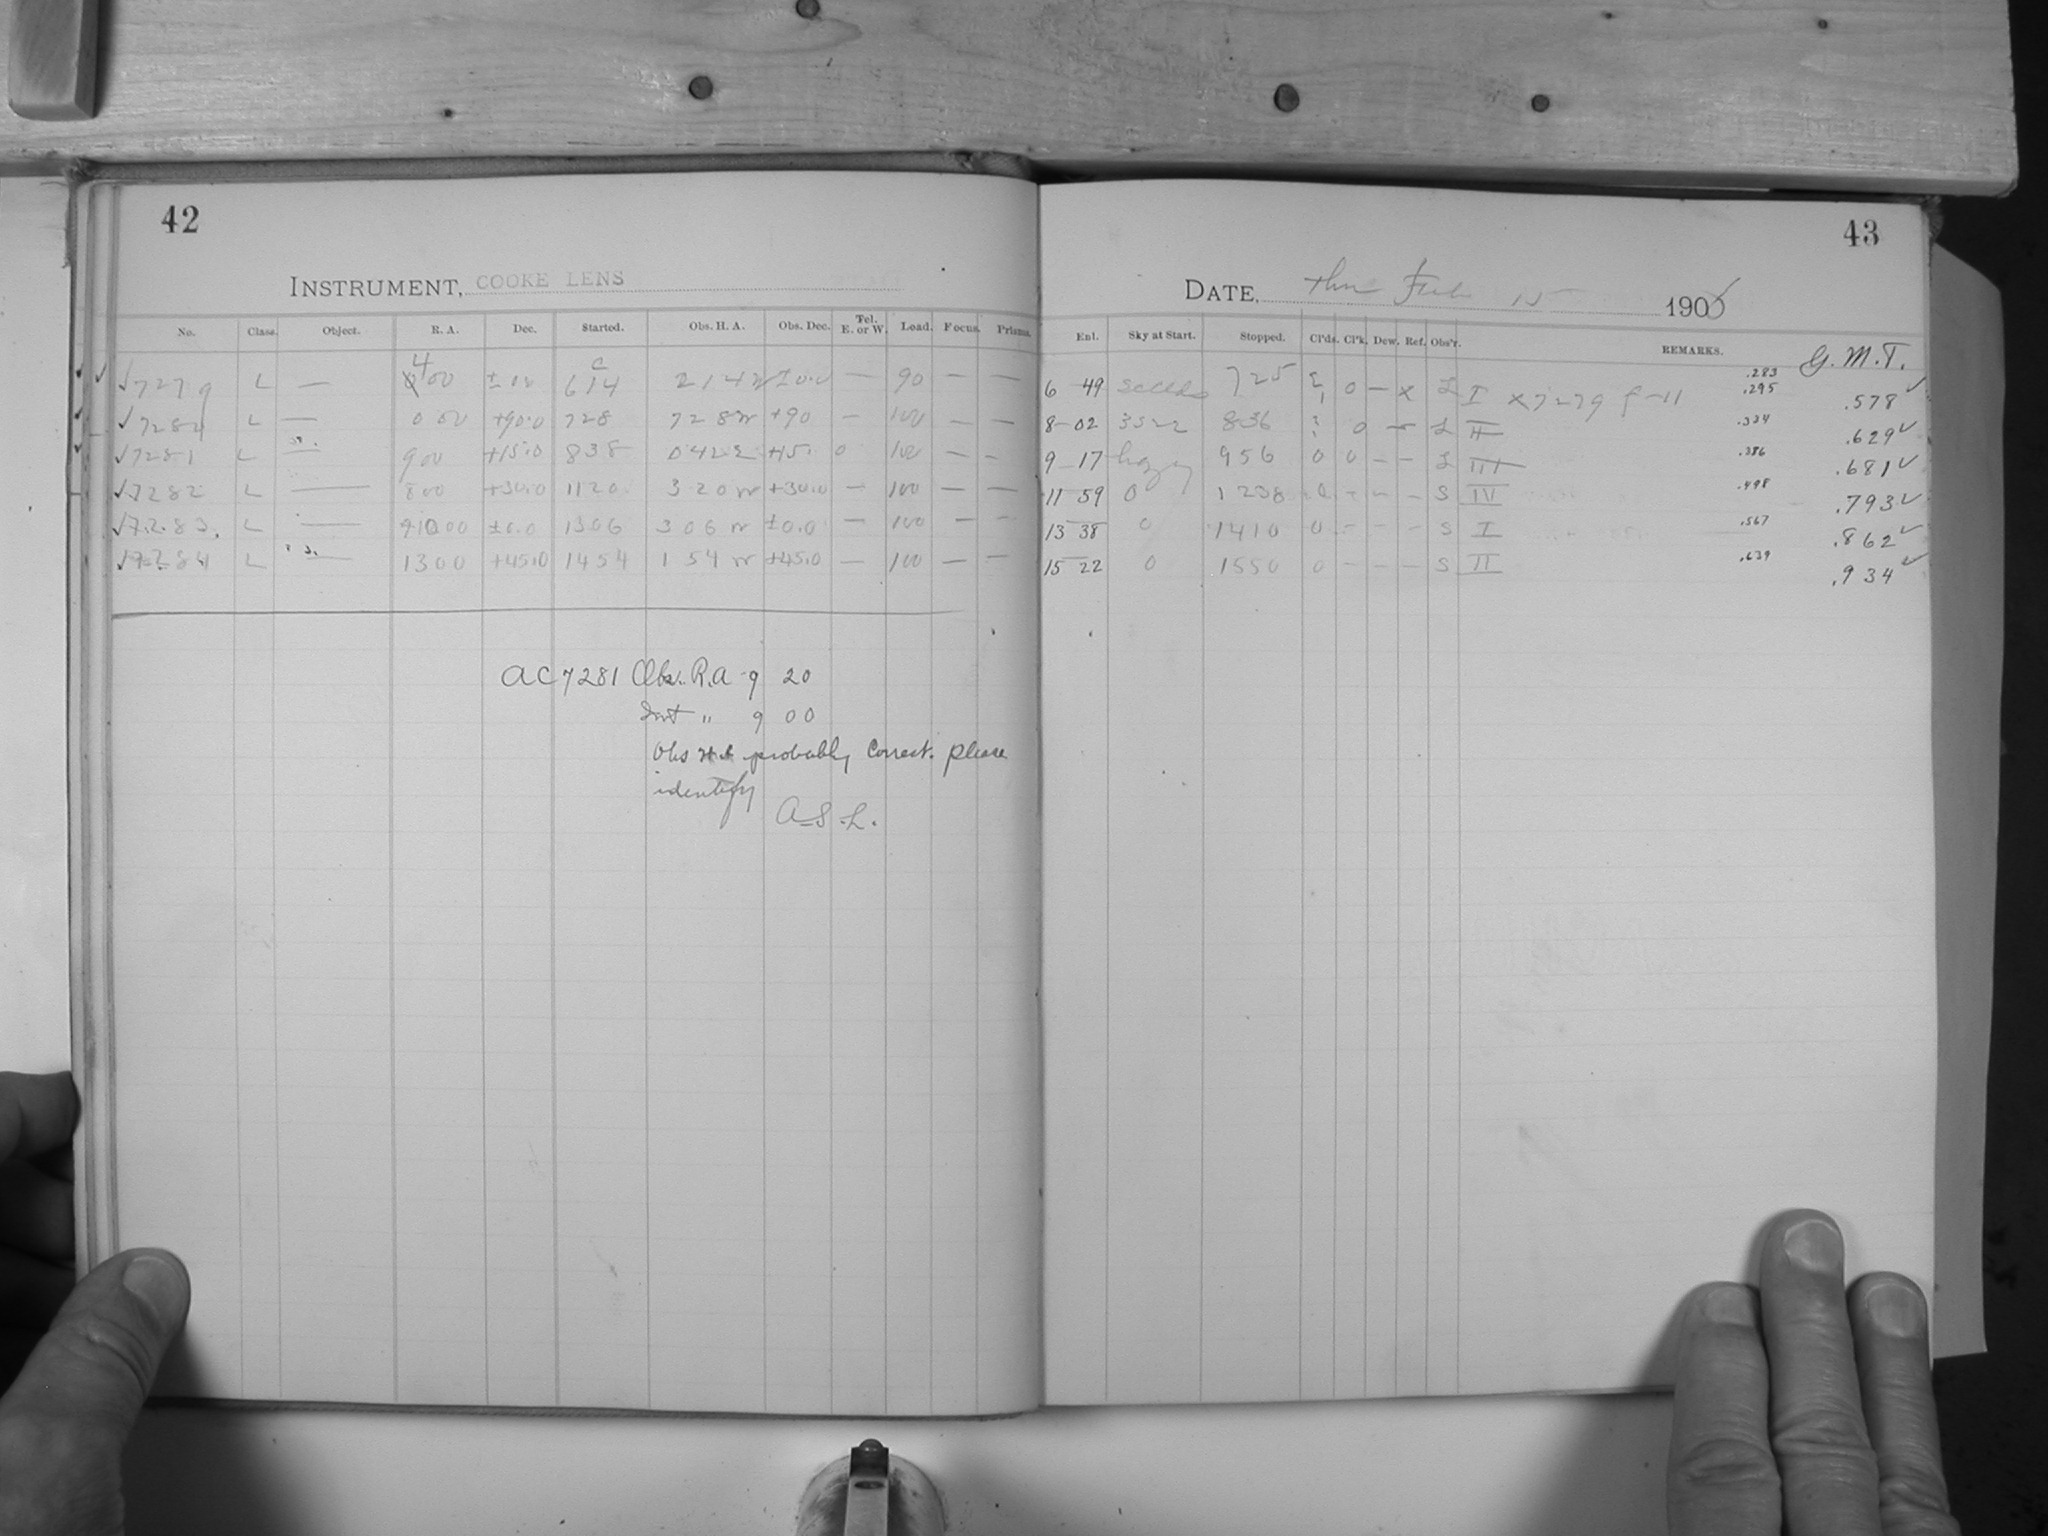 42
INSTRUMENT, COOKE LENS
No. Class. Object. R. A. Dec. Started. Obs. H. A. Obs. Dec. Tel. E. or W. Load. Focus. Prisms.
✓7279 L — 400 ±0.0 614 2 14 ±0.0 — 90 — —
L — 0 00 +90.0 728 7 28 w +90 — 100 — —
✓7281 L 900 +15.0 838 0 42 +15. 0 100 — —
✓7282 L — 800 +30.0 1120 3 20 w +30.0 — 100 — —
✓7283. L — 1000 ±0.0 1306 3 06 w ±0.0 — 100 — —
✓7284 L — 1300 +45.0 1454 1 54 w +45.0 — 100 — —
AC 7281 Obs. R.A 9 20
" 9 00
Obs probably correct. please
identify
A.S.L.
43
DATE, Feb 15 190
Enl. Sky at Start. Stopped. Cl'ds. Cl'k. Dew. Ref. Obs'r. REMARKS. G.M.T.
6 49 725 0 — x L I x 7279 f-11 .283 .295 .578 ✓
8-02 3522 836 ? 0 — L II .334 .629 ✓
9 17 hazy 956 0 0 — — L III .386 .681 ✓
11 59 0 1238 — — S IV .498 .793 ✓
13 38 0 1410 0 - - - S I .567 .862 ✓
15 22 0 1550 0 - - - S II .639 .934 ✓